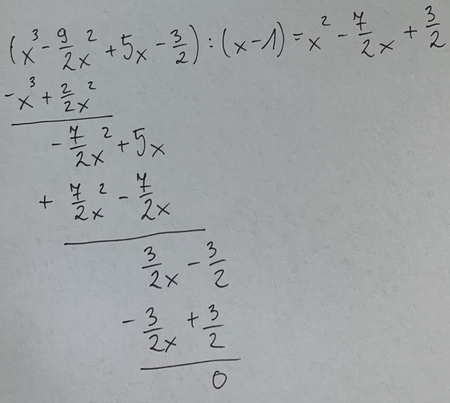 (x³ - 9/2x² + 5x - 3/2) : (x - 1) = x² - 7/2x + 3/2
-x³ + 2/2x²
- 7/2x² + 5x
+ 7/2x² - 7/2x
3/2x - 3/2
- 3/2x + 3/2
0